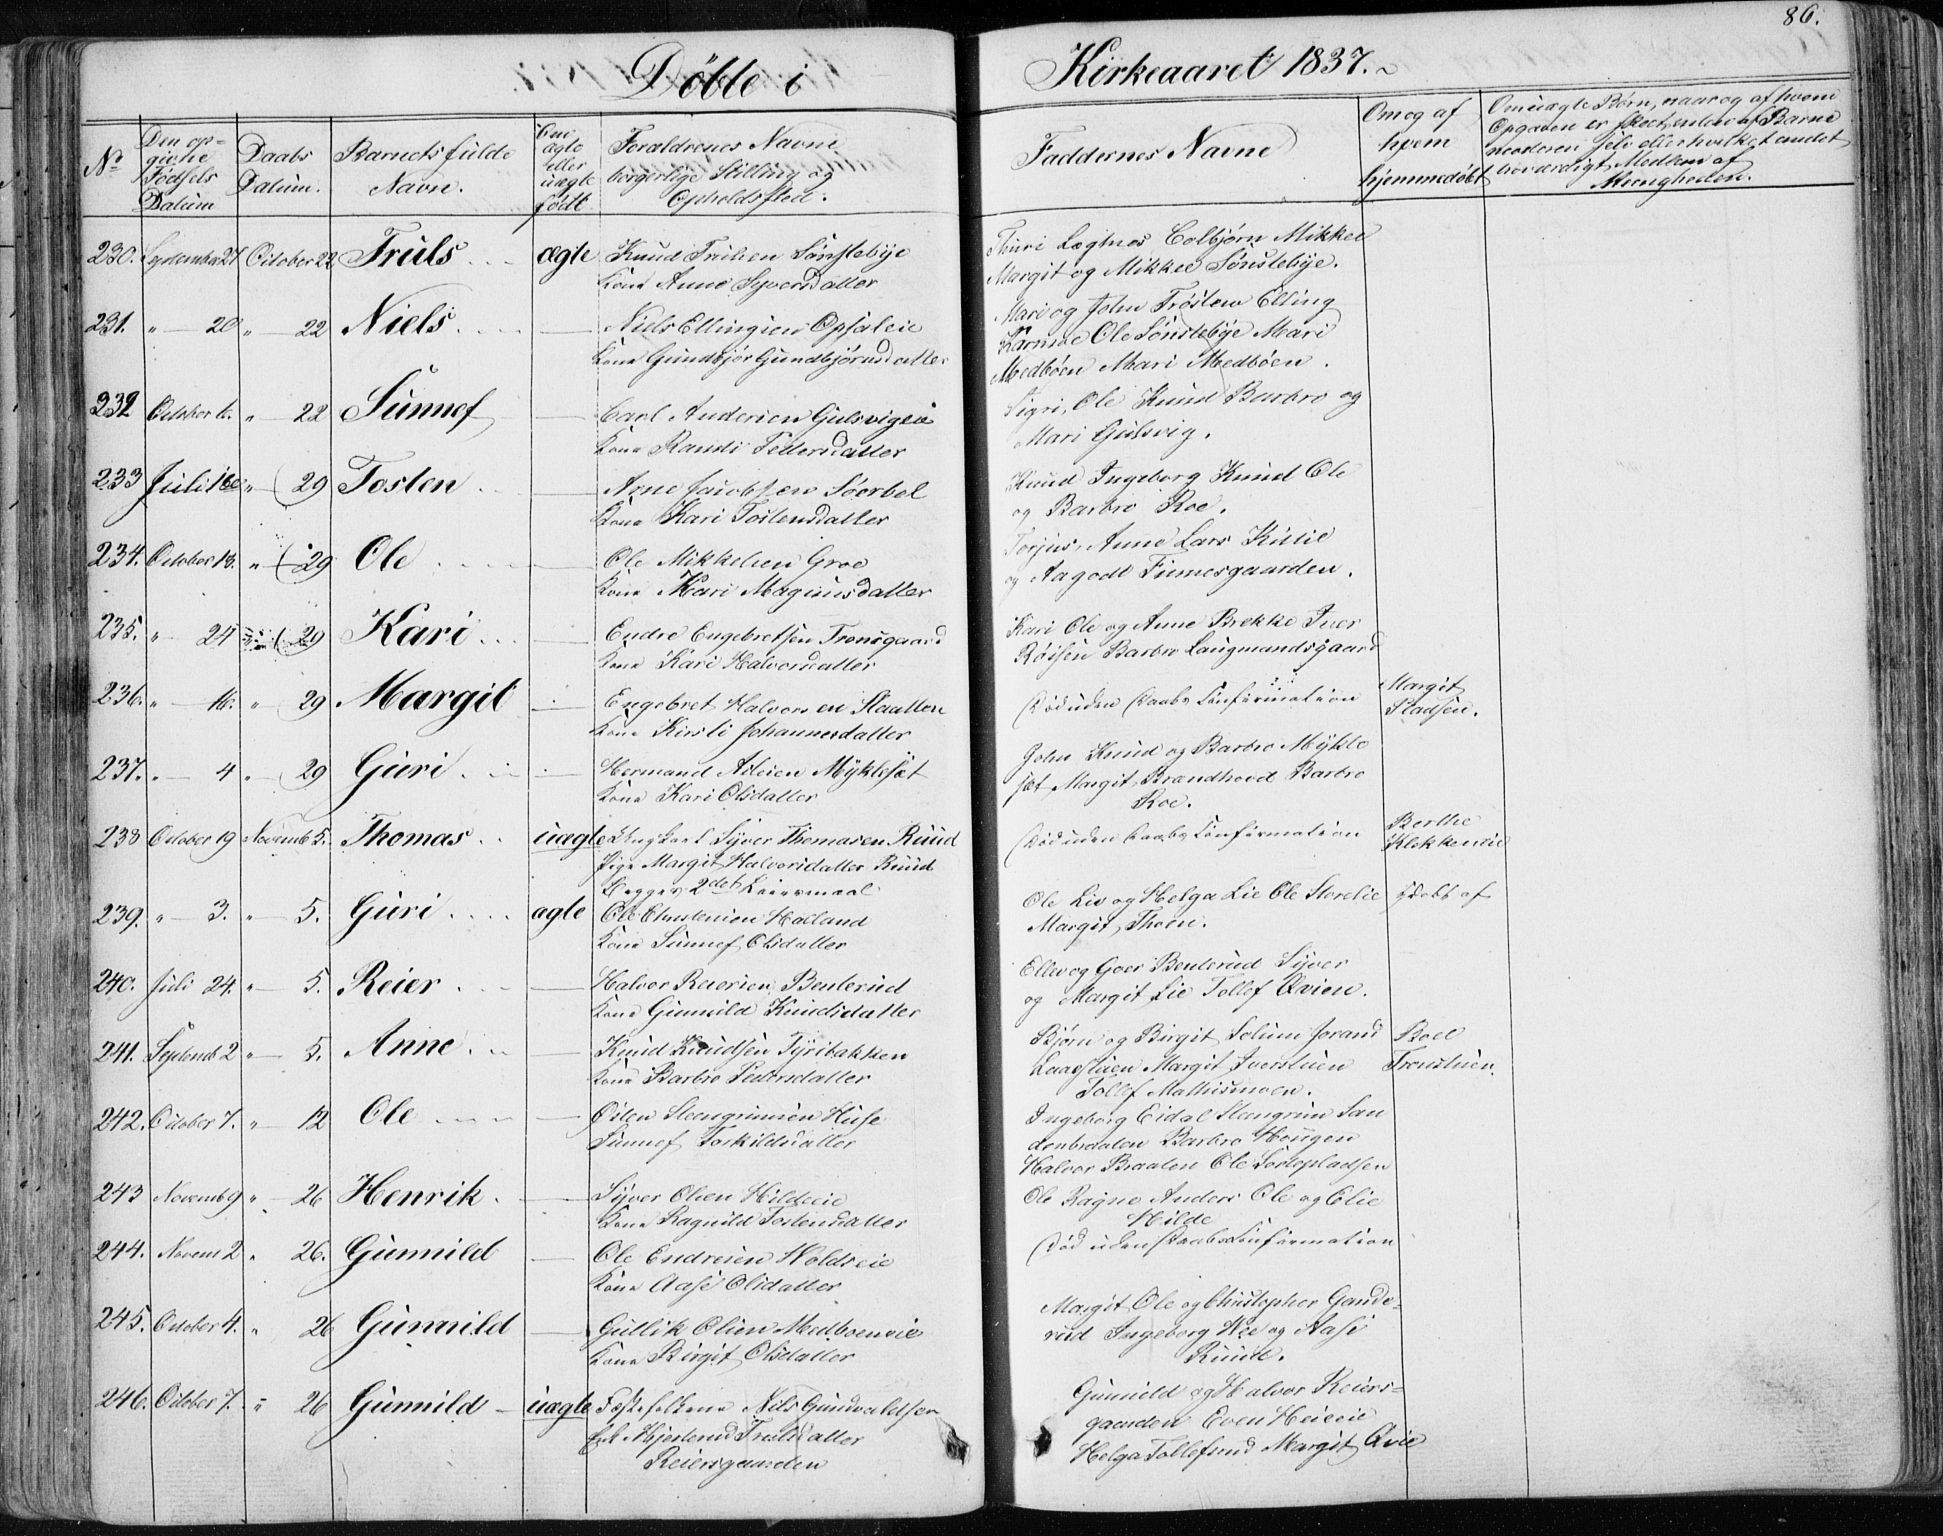 86.
Døbte i Kirkeaaret 1837.
No
Den opgivne Fødsels Datum
Daabs Datum.
Barnets fulde Navn.
Om ægte eller uægte født
Forældrenes Navne borgerlige Stilling og Opholdssted.
Faddernes Navne
Om og af hvem hjemmedøbt
Om uægte Børn, naar og af hvem Opgaven er skeet, enten af Barnemoderen selv eller hvilket andet troværdigt Medlem af Menigheden.
230. September 27 October 22 Truls ægte Knud Trulsen Sønstebye
Kone Anne Syversdatter
Thuri Lægtnes Colbjørn Mikkel
Margit og Mikkel Sønstebye.
231. " 20 " 22 Niels — Niels Ellingsen Opsaleie
Kone Gundbjør Gundbjørnsdatter
Mari og John Trøsten Elling
Ole Sønstebye Mari
Medbøen Mari Medbøen.
232 October 6. " 22 Sünnef — Carl Andersen Gulsvigeie
Kone Randi Pedersdatter
Sigri, Ole Knud Barbro og
Mari Gulsvig.
233 Juli 16 " 29 Tosten Arne Jacobsen Sørbel
Kone Kari Tostensdatter
Knud Ingeborg Knud Ole
og Barbro Roe.
234. October 13. " 29 Ole — Ole Mikkelsen Groe
Kone Mari Magnusdatter
Torjus, Anne Lars Kittil
og Aagodt Fürnesgaarden.
235. " 24 29 Kari — Endre Engebretsen Tronsgaard
Kone Kari Halvorsdatter
Kari Ole og Anne Brekke Iver
Røisen Barbro Laugmandsgaard
236. " 16. " 29 Margit — Engebret Halvorsen Slaatten
Kone Kirsti Johannesdatter
Død uden Daabs Confirmation
Margit
Pladsen.
237. " 4 " 29 Guri — Hermand Mykleset
Kone Kari Olsdatter
John Knud og Barbro Mykle
set Margit Brandhovd Barbro
Roe.
238 October 19 Novemb 5. Thomas uægte Ungkarl Syver Thomasen Ruud
Pige Margit Halvorsdatter Ruud
Begges 2det Leiermaal
Død uden Daabs Confirmation
Berthe
Klekkeneie
239. " 3. " 5. Guri ægte Ole Christensen
Kone Sünnef Olsdatter
Ole Liv og Helga Lie Ole Storelie
Margit Thoen.
døbt af
240. Juli 24. " 5. Reier — Halvor Reiersen Benterud
Kone Gunnild Knudsdatter
Ellev og Goer Benterud Syver
og Margit Lie Tollef Qvien.
241. Septemb 2 " 5. Anne — Knud Knudsen Tyribakken
Kone Barbro Pedersdatter
Bjørn og Birgit Solum Jorand
Margit Iverstuen
Tollef Mathismoen.
Boel
Tronstuen.
242. October 7. " 12 Ole — Østen Steengrimsen Huse
Sünnef Torkildsdatter
Ingeborg Eidal Stengrim San
denbrdalen Barbro Hougen
Halvor Braaten Ole Tortepladsen
243 Novemb 9 " 26 Henrik — Syver Olsen Hildeeie
Kone Ragnild Tostensdatter
Ole Ragne Anders Ole og Elie
Hilde
244. Novem 2 " 26. Gunnild — Ole Endresen Woldseie
Kone Aase Olsdatter
Død uden Daabs Confirmation
245. October 4. " 26 Gunnild — Gullik Olsen Medboeneie
Kone Birgit Olsdatter
Margit Ole og Christopher Gande-
rud Ingeborg og Aase
Ruud.
246. October 7. " 26 Gunnild uægte Fæstefolkene Nils Gundvaldsen
Trulsdatter
Reiersgaarden
Gunnild og Halvor Reiers-
gaarden Even Heieeie
Helga Tollefsrud Margit Qvie